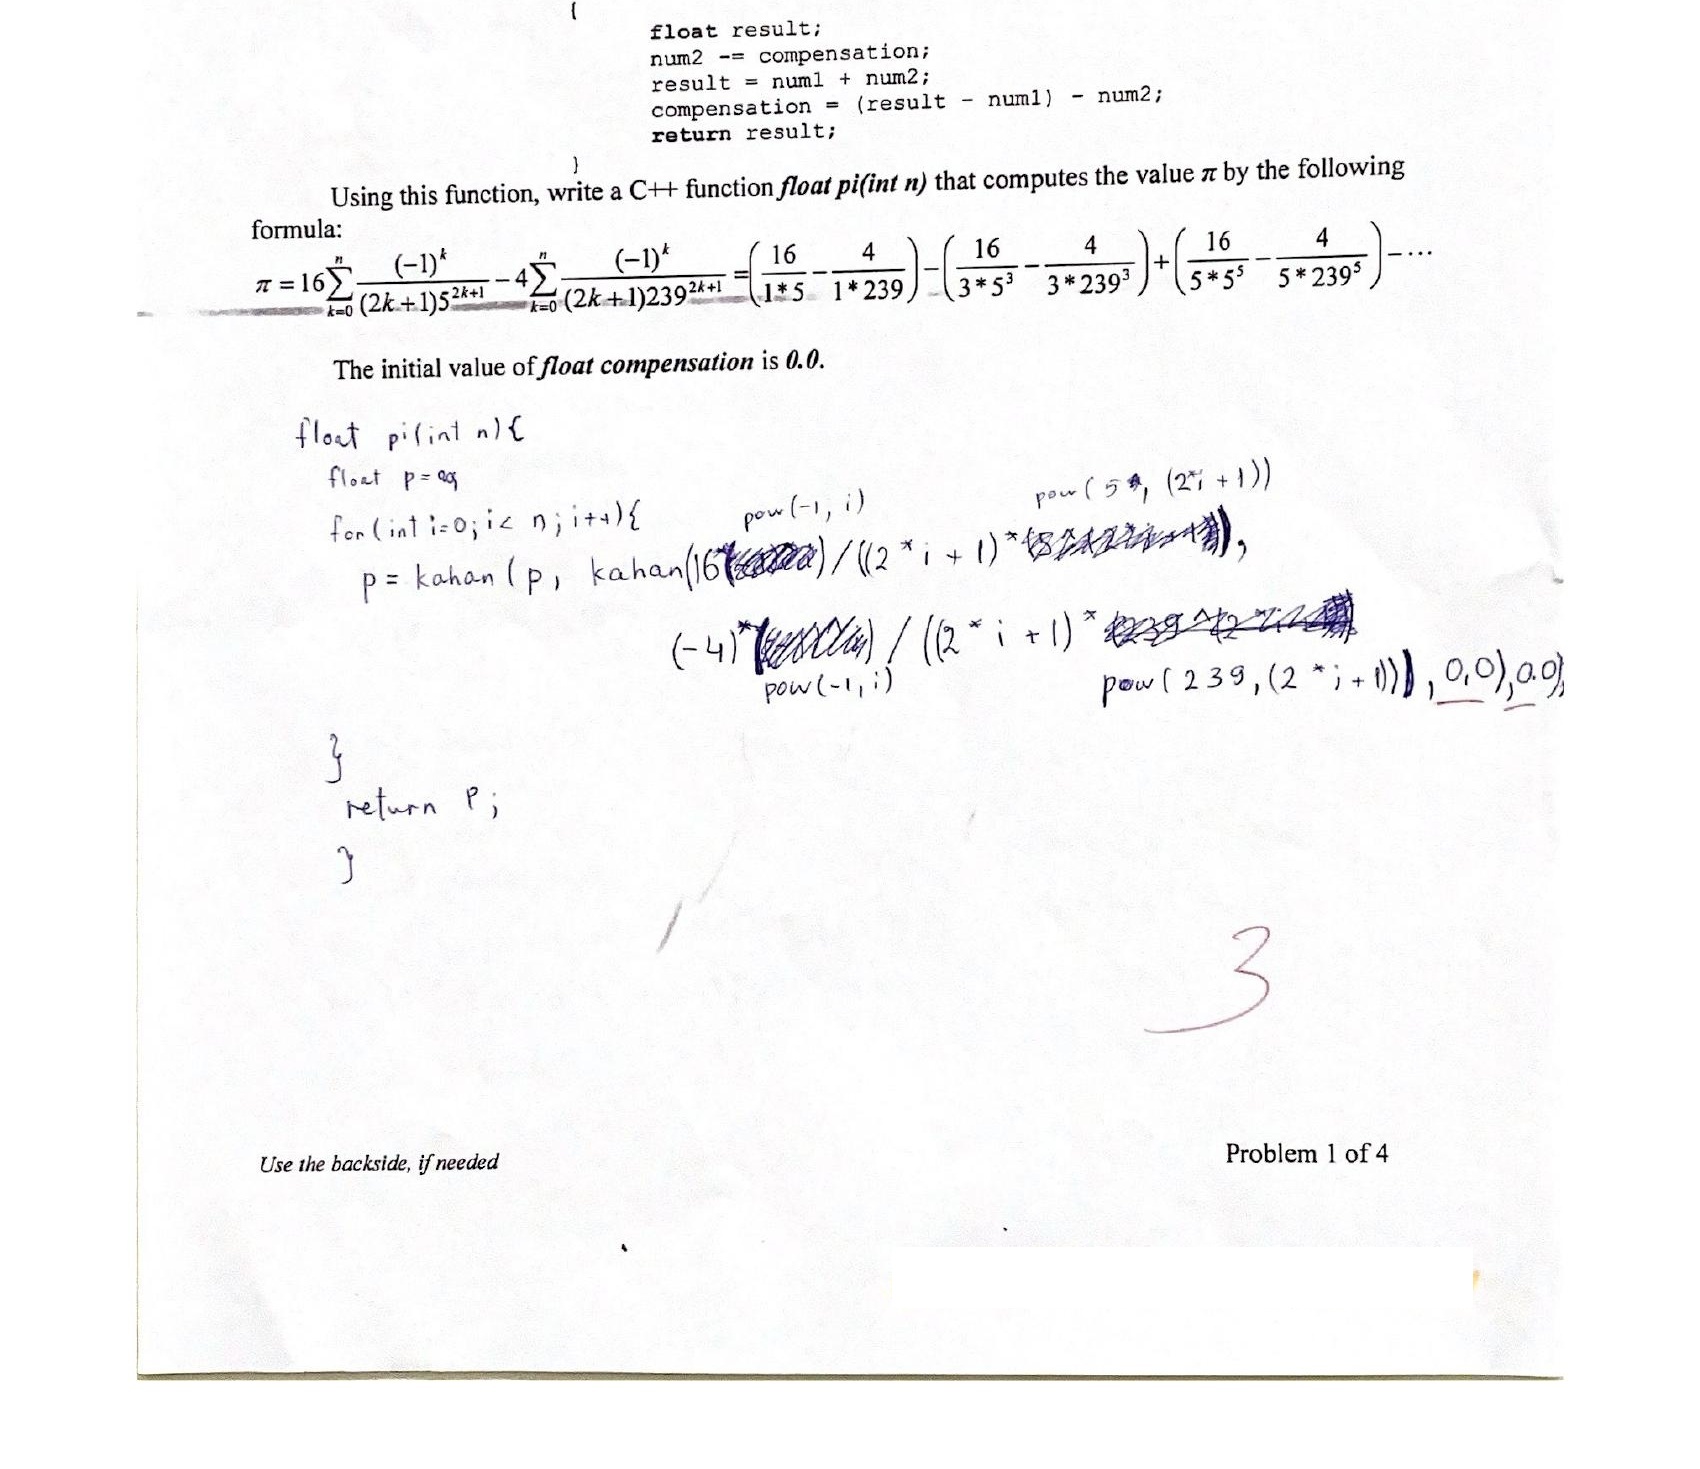 {
float result;
num2 -= compensation;
result = num1 + num2;
compensation = (result - num1) - num2;
return result;
}
Using this function, write a C++ function float pi(int n) that computes the value π by the following
formula:
π = 16 n∑k=0 (-1)^k / (2k+1)5^2k+1 - 4 n∑k=0 (-1)^k / (2k+1)239^2k+1 = (16 / 1*5 - 4 / 1*239) - (16 / 3*5^3 - 4 / 3*239^3) + (16 / 5*5^5 - 4 / 5*239^5) - ...
The initial value of float compensation is 0.0.
float pi(int n){
float p=
for(int i=0; i< n; i++){
pow(-1, i) pow(5, (2*i +1))
p = kahan(p, kahan(16 )/((2*i + 1)* ),
(-4)* / ((2*i + 1)*
pow(-1, i) pow(239, (2*i+1))), 0,0), 0.0);
}
return p;
}
3
Use the backside, if needed
Problem 1 of 4